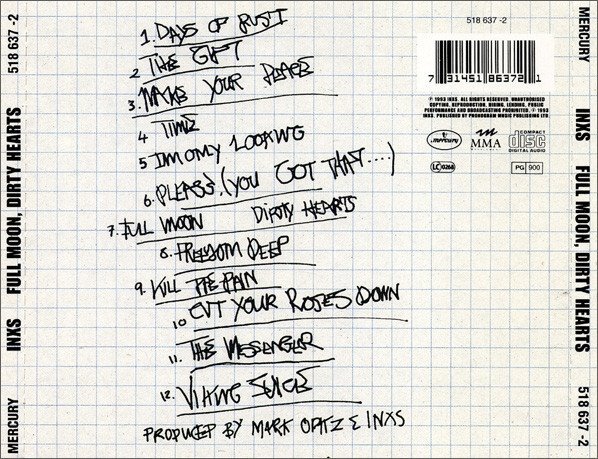 MERCURY INXS FULL MOON, DIRTY HEARTS 518 637 -2
1. DAYS OF RUST
2 THE GIFT
3. MAKE YOUR PEACE
4 TIME
5 IM ONLY LOOKING
6. PLEASE, (YOU GOT THAT....)
7. FULL MOON DIRTY HEARTS
8. FREEDOM DEEP
9. KILL THE PAIN
10 CUT YOUR ROSES DOWN
11. THE MESSENGER
12. VIKING JUICE
PRODUCED BY MARK OPITZ & INXS
518 637 -2
7 31451 86372 1
℗ 1993 INXS. ALL RIGHTS RESERVED. UNAUTHORISED
COPYING, REPRODUCTION, HIRING, LENDING, PUBLIC
PERFORMANCE AND BROADCASTING PROHIBITED. © 1993
INXS. PUBLISHED BY PHONOGRAM MUSIC PUBLISHING LTD.
mercury MMA COMPACT disc DIGITAL AUDIO
LC 0268 PG 900
MERCURY INXS FULL MOON, DIRTY HEARTS 518 637 -2